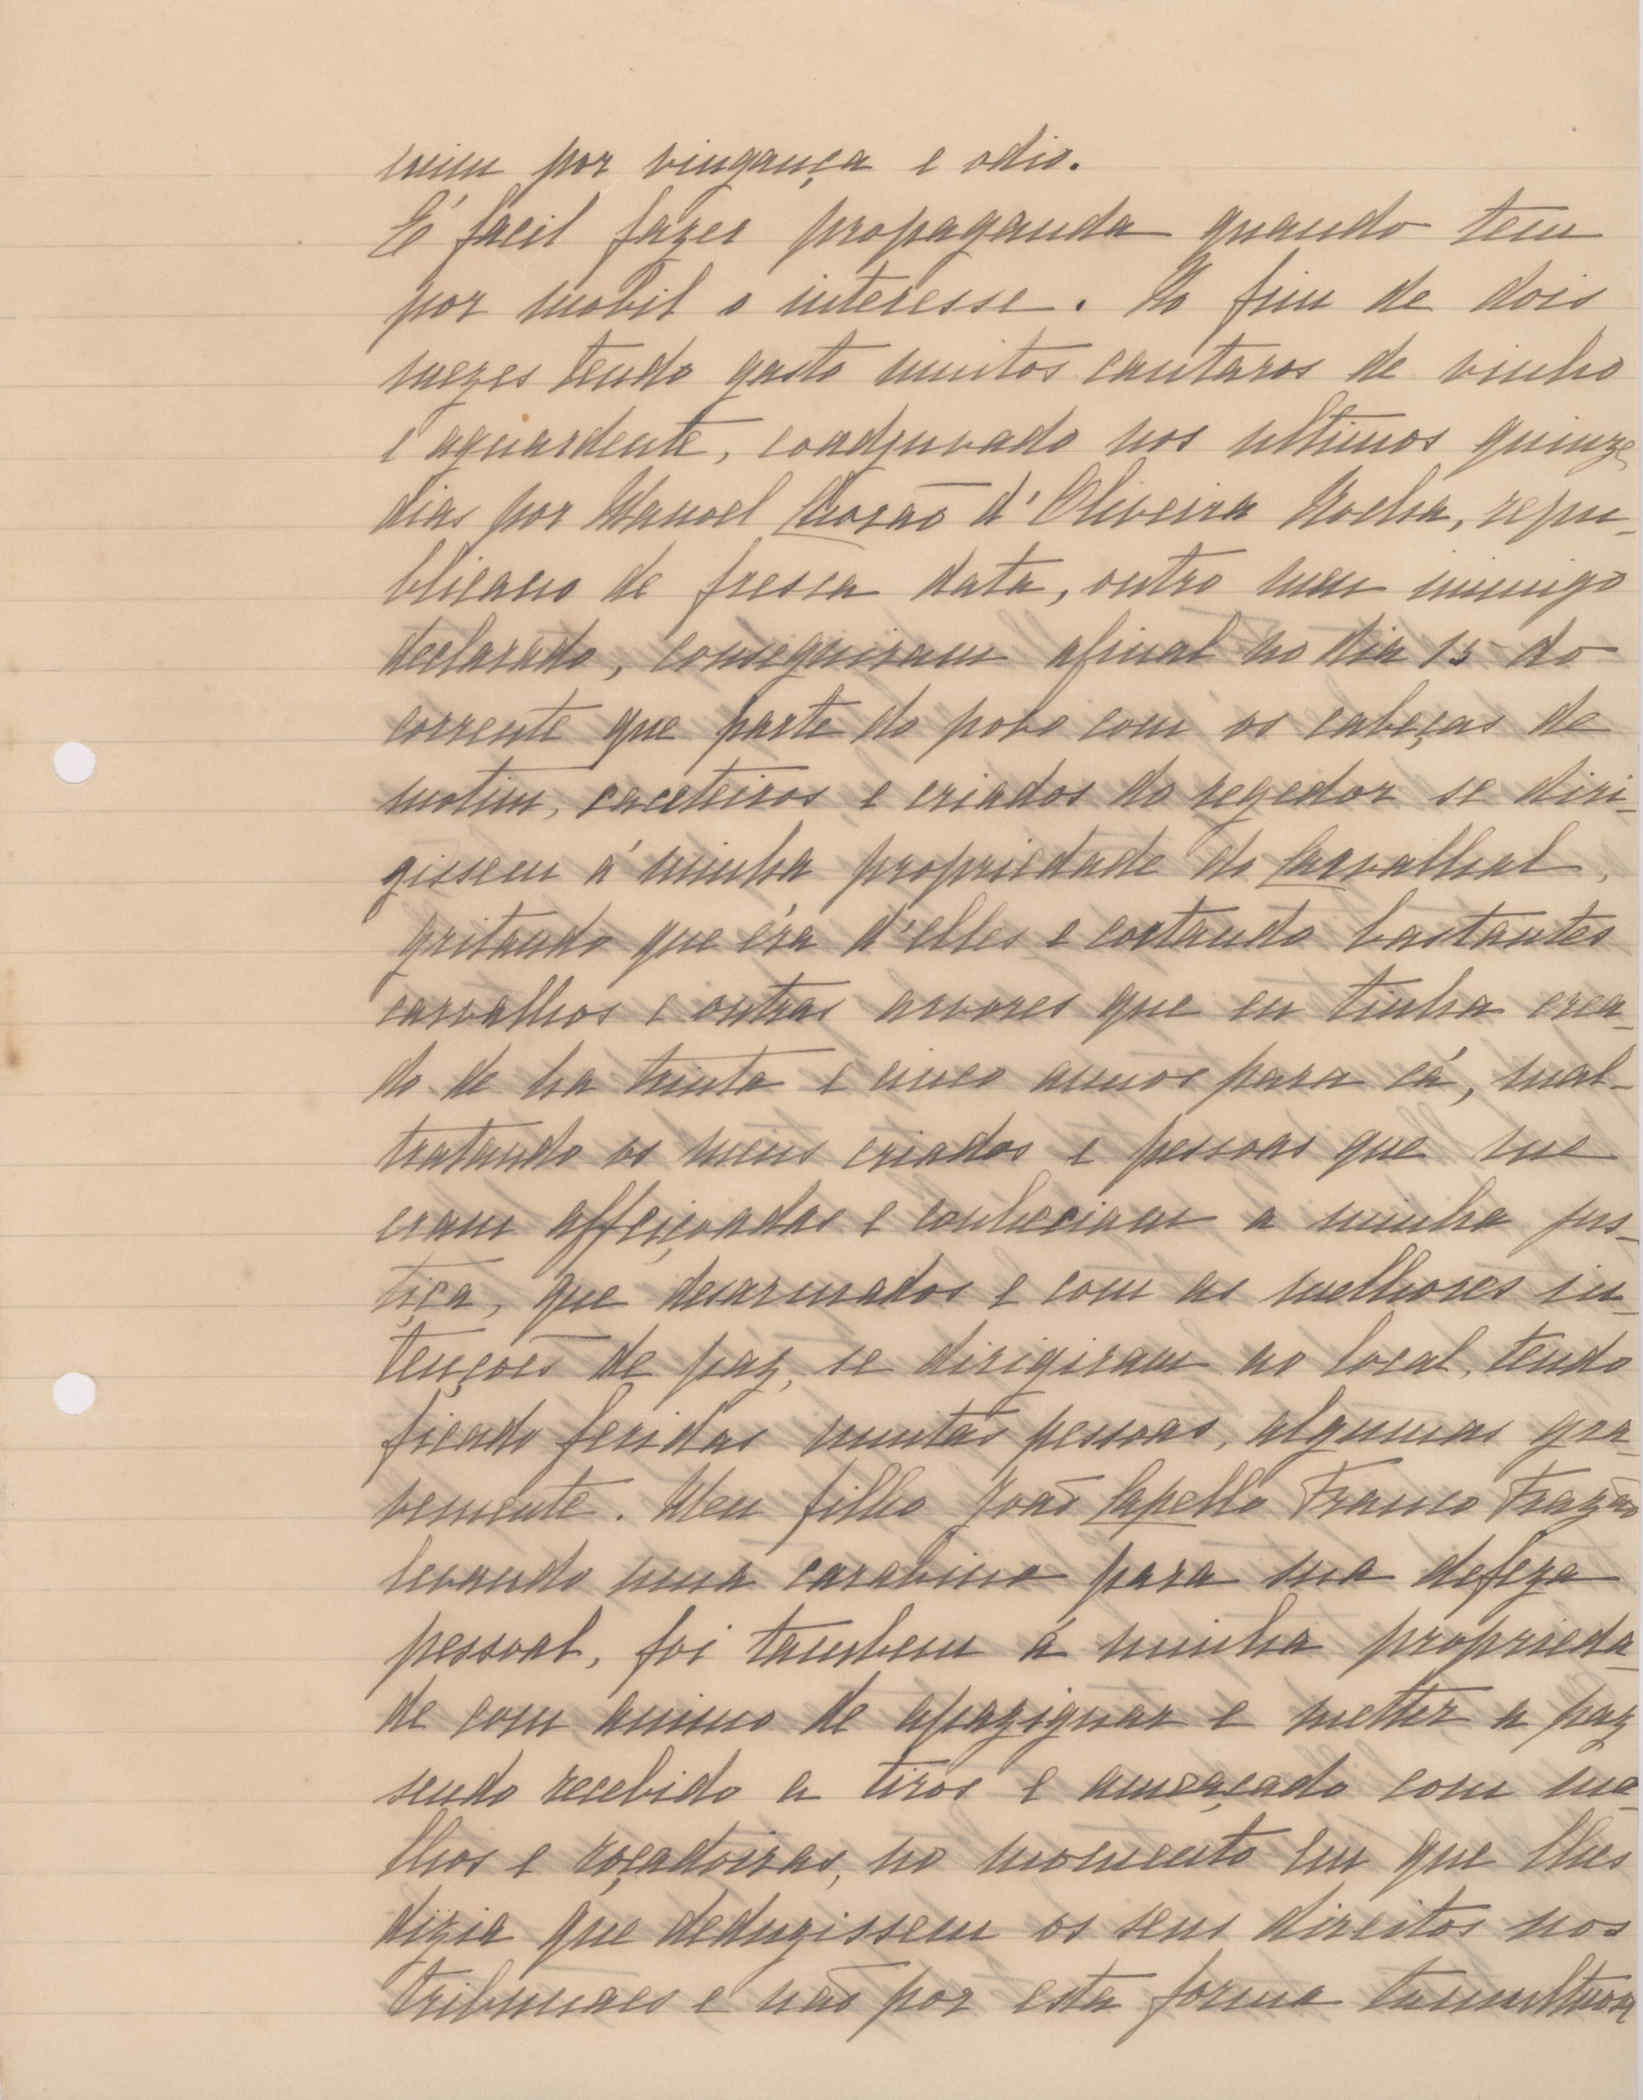 ruim por vingança e odio.
É facil fazer propaganda quando tem
por mobil o interesse. No fim de dois
mezes tendo gasto muitos cantaros de vinho
e aguardente, coadjuvado nos ultimos quinze
dias por Manoel d'Oliveira Rocha, repu-
blicano de fresca data, outro meu inimigo
declarado, conseguiram afinal no dia 15 do
corrente que parte do povo com os cabeças de
motim, caceteiros e criados do regedor se diri-
gissem á minha propriedade do Carvalhal,
gritando que éra d'elles e cortando bastantes
carvalhos e outras arvores que eu tinha crea-
do de ha trinta e cinco annos para cá, mal-
tratando os meus criados e pessoas que me
eram affeiçoadas e conheciam a minha jus-
tiça, que desarmados e com as melhores in-
tenções de paz, se dirigiram ao local, tendo
ficado feridas muitas pessoas, algumas gra-
vemente. Meu filho João Capello Franco Frazão
levando uma carabina para sua defeza
pessoal, foi tambem á minha proprieda-
de com animo de apaziguar e metter a paz
sendo recebido a tiros e ameaçado com ma-
lhos e roçadoiras, no momento em que lhes
dizia que deduzissem os seus direitos nos
tribunaes e não por esta forma tumultuosa